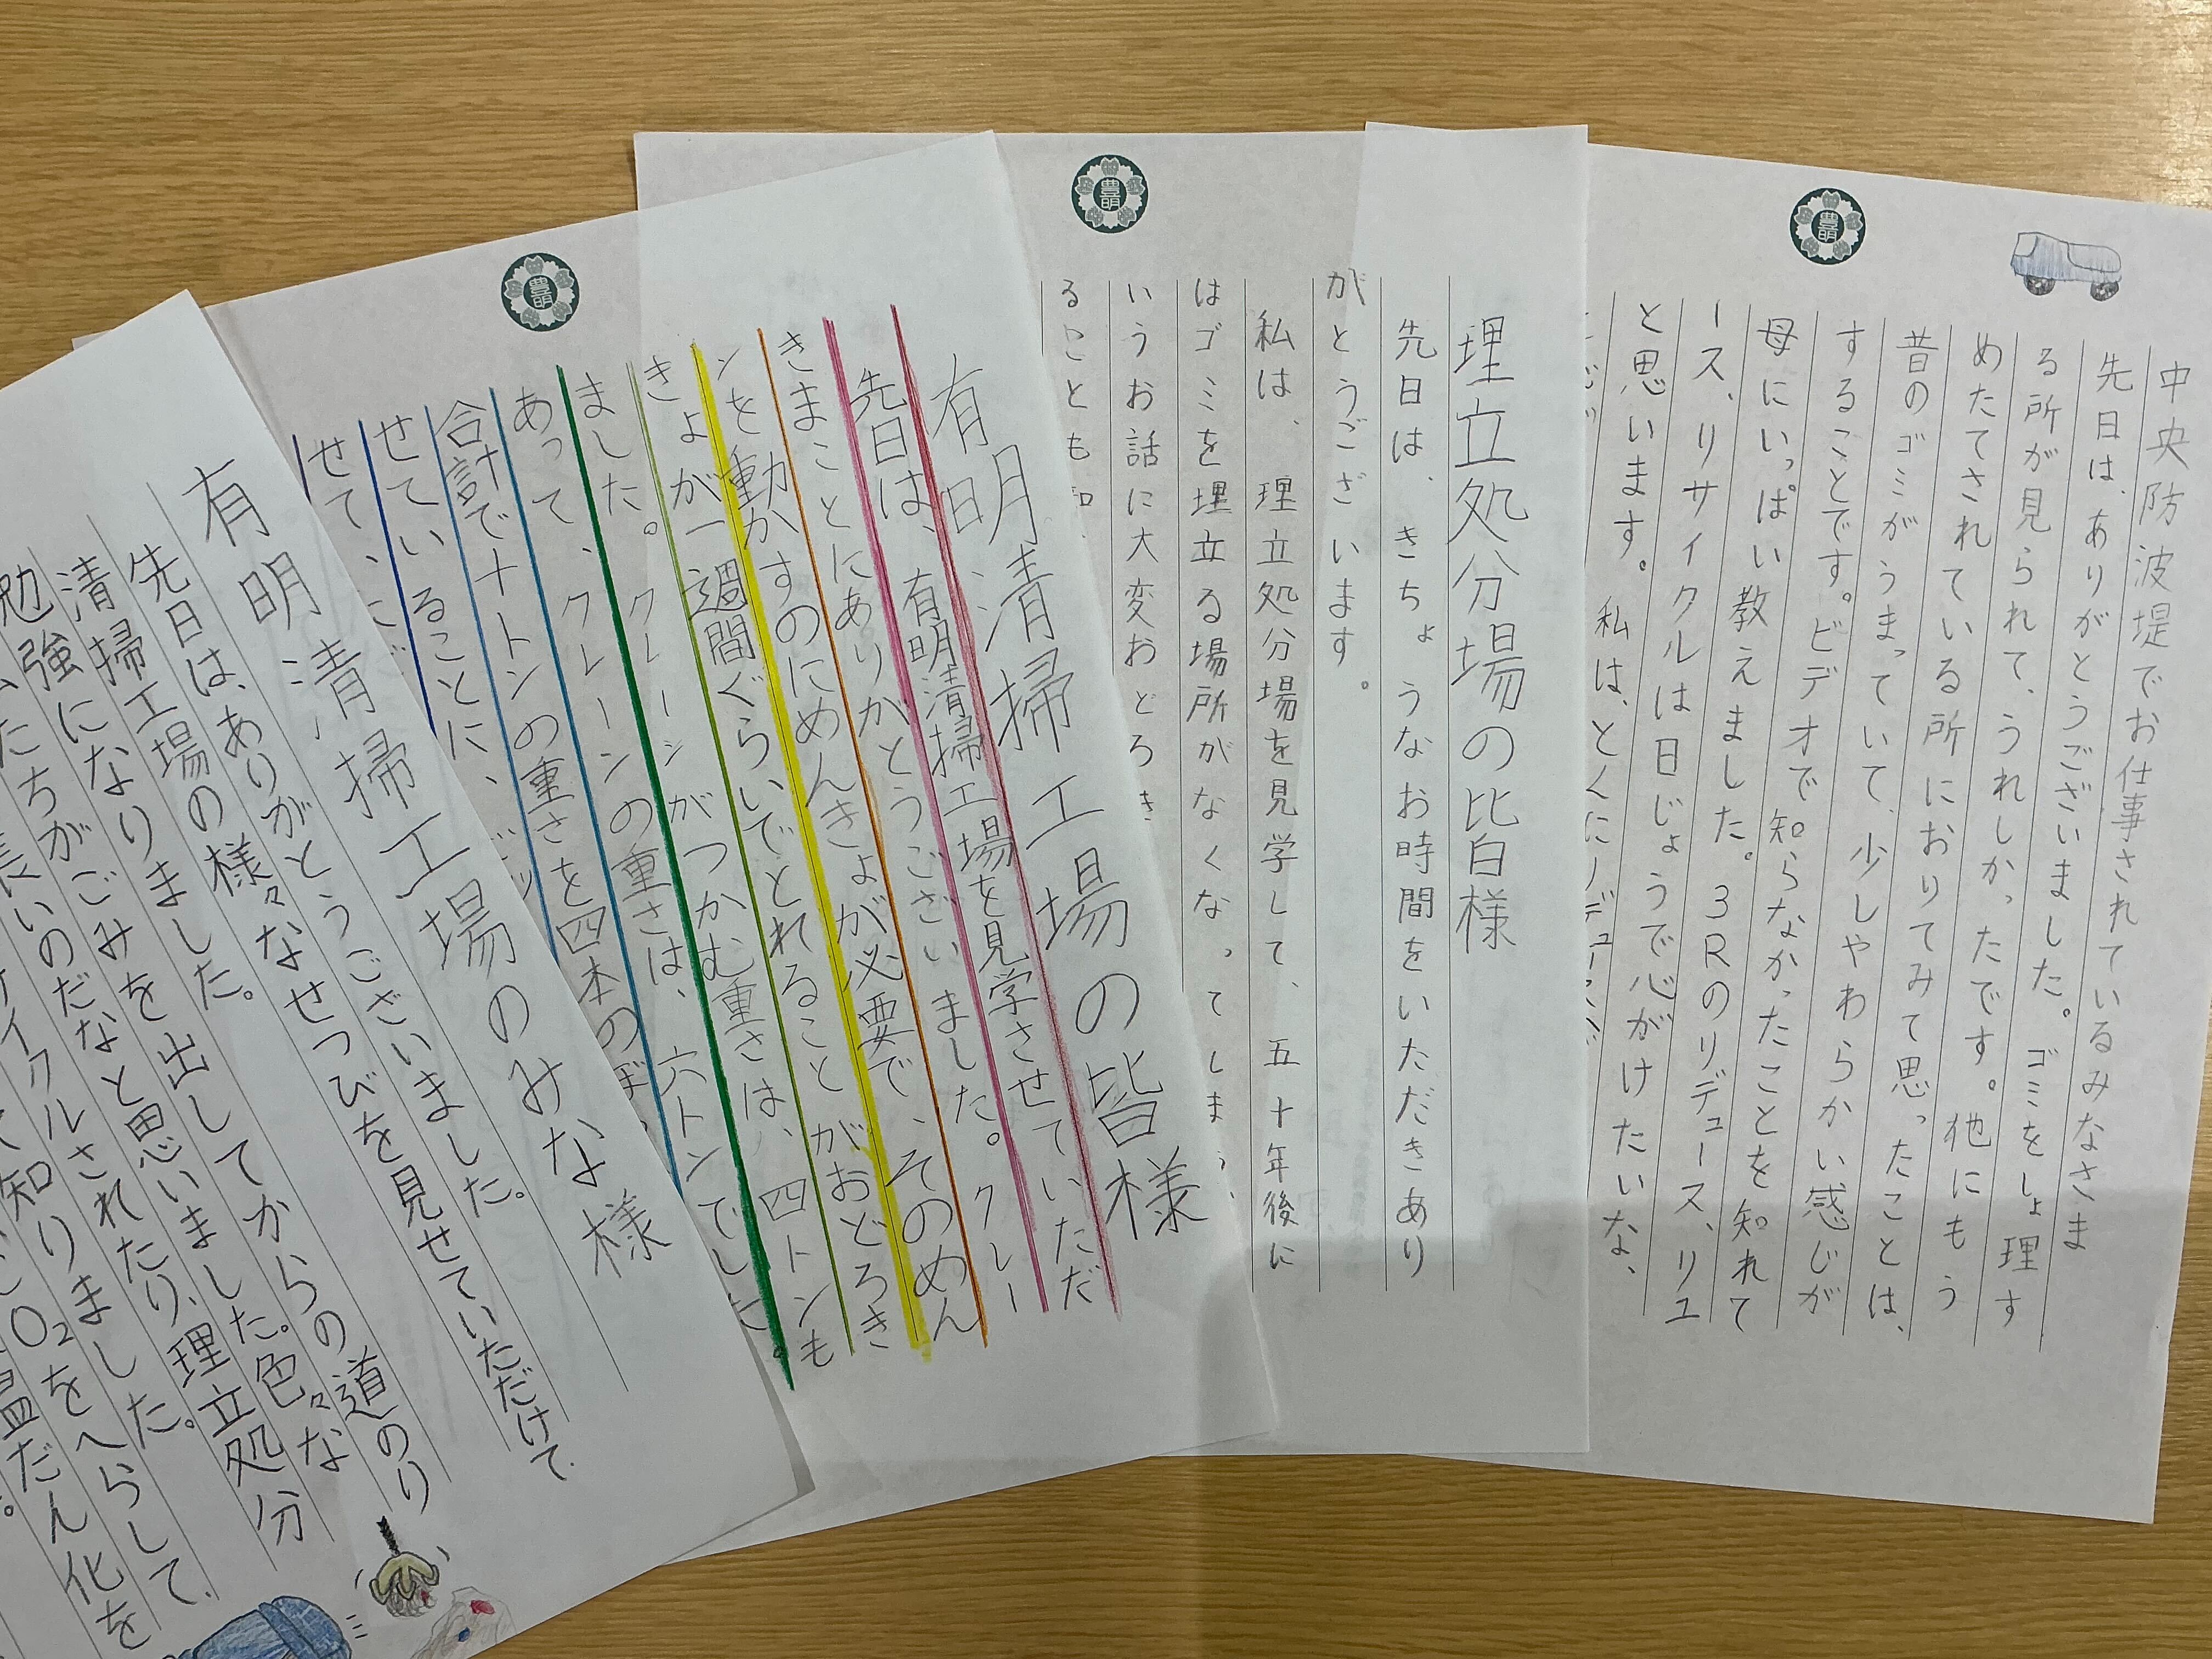 中央防波堤でお仕事されているみなさま
先日は、ありがとうございました。ゴミをしょ理す
る所が見られて、うれしかったです。他にもう
めたてされている所におりてみて思ったことは、
昔のゴミがうまっていて、少しやわらかい感じが
することです。ビデオで知らなかったことを知れて
母にいっぱい教えました。3Rのリデュース、リユ
ース、リサイクルは日じょうで心がけたいな、
と思います。私は、とくにリデュースが
埋立処分場の皆様
先日は、きちょうなお時間をいただきあり
がとうございます。
私は、理立処分場を見学して、五十年後に
はゴミを埋立る場所がなくなってしまう
いうお話に大変おどろき
ることも知
有明清掃工場の皆様
先日は、有明清掃工場を見学させていただ
きまことにありかとうございました。クレー
ンを動かすのにめんきょが必要で、そのめん
きょが一週間ぐらいでとれることがおどろき
ました。クレーンがつかむ重さは、四トンも
あって、クレーンの重さは、六トンでした。
合計で十トンの重さを四本のぼ
せていることに、
せて、
有明清掃工場のみな様
先日は、ありがとうございました。
清掃工場の様々なせつびを見せていただけて
勉強になりました。
たちがごみを出してからの道のり
長いのだなと思いました。色々な
サイクルされたり、理立処分
知りました。
O₂をへらして、
温だん化を
豊明
豊明
豊明